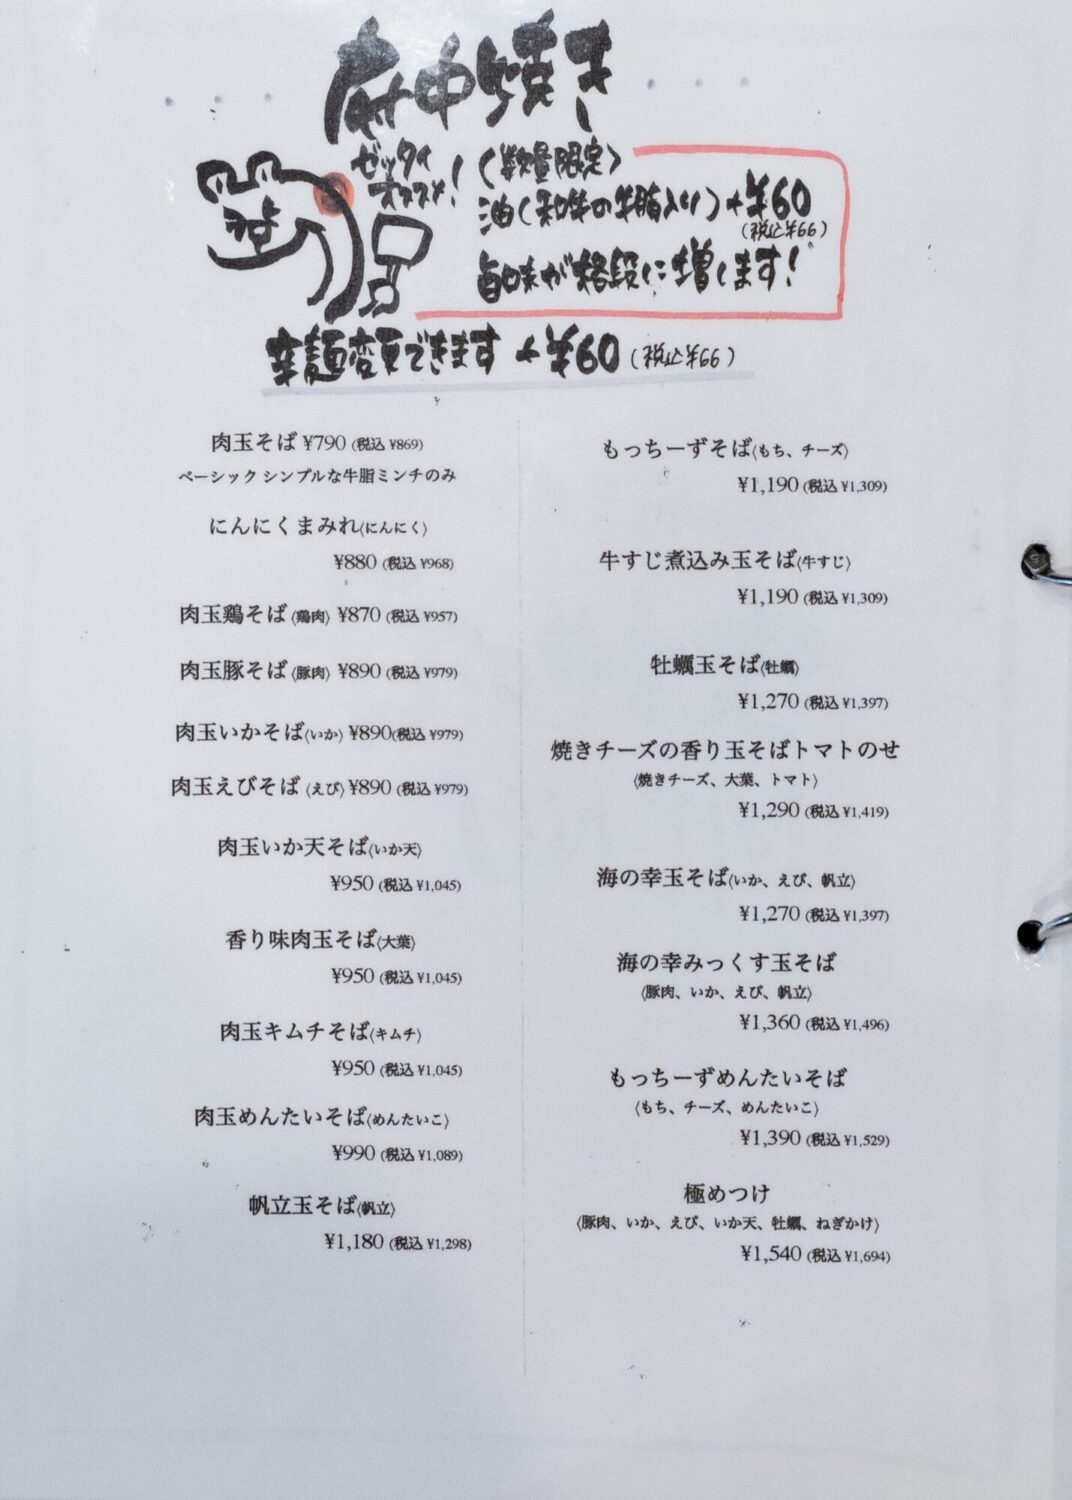 府中焼き
ゼッタイ
オススメ!
(数量限定)
油(和牛の牛脂入り)+¥60
(税込¥66)
旨味が格段に増します!
辛麺変更できます +¥60 (税込¥66)
肉玉そば ¥790 (税込 ¥869)
ベーシック シンプルな牛脂ミンチのみ
にんにくまみれ〈にんにく〉
¥880 (税込 ¥968)
肉玉鶏そば〈鶏肉〉 ¥870 (税込 ¥957)
肉玉豚そば〈豚肉〉 ¥890 (税込 ¥979)
肉玉いかそば〈いか〉 ¥890(税込 ¥979)
肉玉えびそば〈えび〉 ¥890 (税込 ¥979)
肉玉いか天そば〈いか天〉
¥950 (税込 ¥1,045)
香り味肉玉そば〈大葉〉
¥950 (税込 ¥1,045)
肉玉キムチそば〈キムチ〉
¥950 (税込 ¥1,045)
肉玉めんたいそば〈めんたいこ〉
¥990 (税込 ¥1,089)
帆立玉そば〈帆立〉
¥1,180 (税込 ¥1,298)
もっちーずそば〈もち、チーズ〉
¥1,190 (税込 ¥1,309)
牛すじ煮込み玉そば〈牛すじ〉
¥1,190 (税込 ¥1,309)
牡蠣玉そば〈牡蠣〉
¥1,270 (税込 ¥1,397)
焼きチーズの香り玉そばトマトのせ
〈焼きチーズ、大葉、トマト〉
¥1,290 (税込 ¥1,419)
海の幸玉そば〈いか、えび、帆立〉
¥1,270 (税込 ¥1,397)
海の幸みっくす玉そば
〈豚肉、いか、えび、帆立〉
¥1,360 (税込 ¥1,496)
もっちーずめんたいそば
〈もち、チーズ、めんたいこ〉
¥1,390 (税込 ¥1,529)
極めつけ
〈豚肉、いか、えび、いか天、牡蠣、ねぎかけ〉
¥1,540 (税込 ¥1,694)